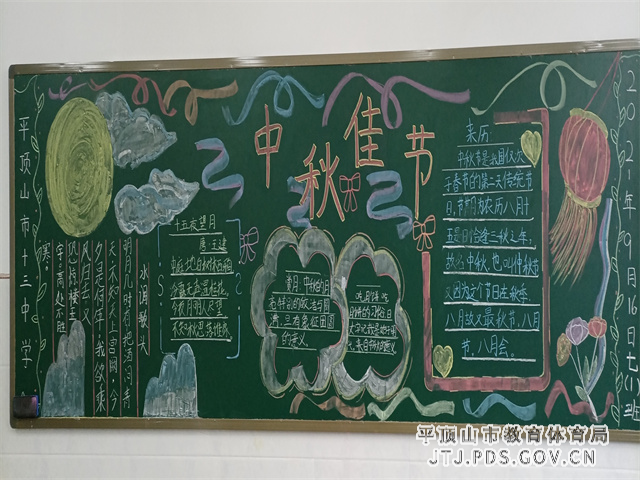 平顶山市十三中学
中秋佳节
水调歌头
明月几时有,把酒问青
天,不知天上宫阙,今
夕是何年,我欲乘
风归去,又
恐琼楼玉
宇,高处不胜
寒。
十五夜望月
唐:王建
中庭地白树栖鸦
冷露无声湿桂花
今夜月明人尽望
不知秋思落谁家
赏月
意义。
来历:
中秋节是我国仅次
于春节的第二大传统节
日,节期为农历八月十
五是日恰逢三秋之半,
故名中秋,也叫仲秋节
又因为这个节日在秋季,
八月故又最秋节,八月
节,八月会。
2021年9月16日七八班
平顶山市教育体育局
JTJ.PDS.GOV.CN